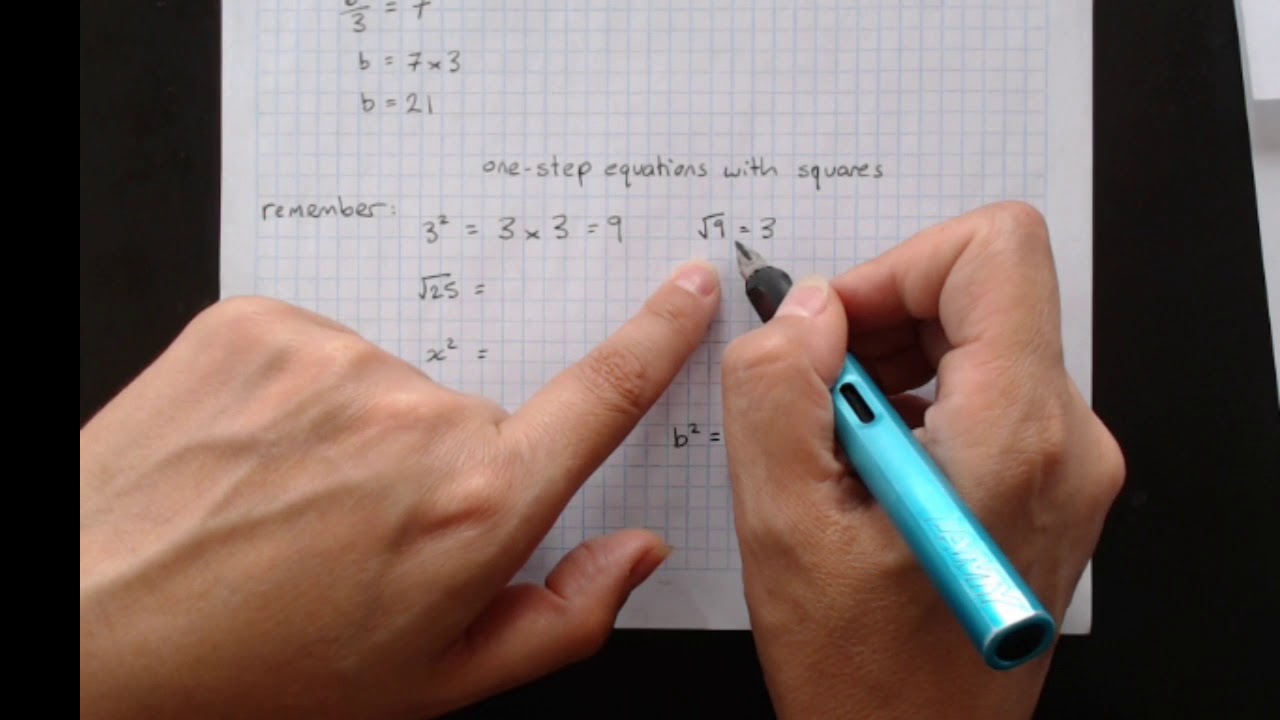 3 = 7
b = 7 × 3
b = 21
one-step equations with squares
remember:
3² = 3 × 3 = 9 √9 = 3
√25 =
x² =
b² =
LAMY